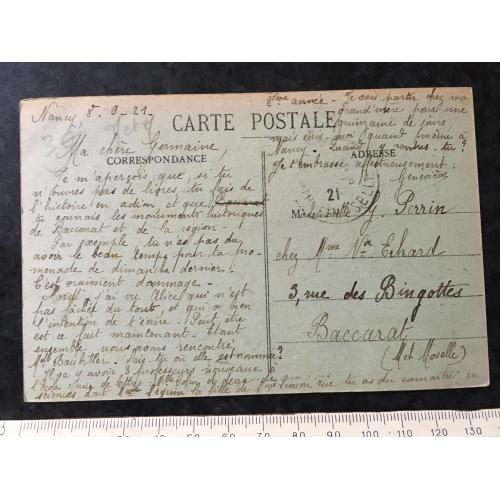 Nancy, 8-9-21-
CARTE POSTALE
CORRESPONDANCE
ADRESSE
Ma chère Germaine,
Je m'aperçois que, si tu
n'ouvres pas de livres, tu fais de
l'histoire en action et que
tu connais les monuments historiques
de Baccarat et de la région -
Par exemple tu n'as pas du
avoir le beau temps pour ta pro-
menade de dimanche dernier.
C'est vraiment dommage -
j'ai vu Alice qui n'est
pas fâchée du tout et qui a bien
l'intention de t'écrire - Peut-être
est ce fait maintenant - étant
ensemble nous avons rencontré
Melle - Sais-tu où elle est nommée ?
Il va y avoir 3 professeurs nouveaux
à l'école : une de lettres : Melle deux de
sciences dont Melle la fille de Mme Simon que tu as du connaître en
2ème année - Je vais partir chez ma
grand'mère pour une
quinzaine de jours
mais écris-moi quand même à
Nancy - Quand reviens-tu ?
Je t'embrasse affectueusement :
Geneviève
21
Mademoiselle G. Perrin
chez Mme Nve Ehard
3, rue des Bingottes
Baccarat
(Met Moselle)
10 20 30 40 50 60 70 80 90 100 110 120 130